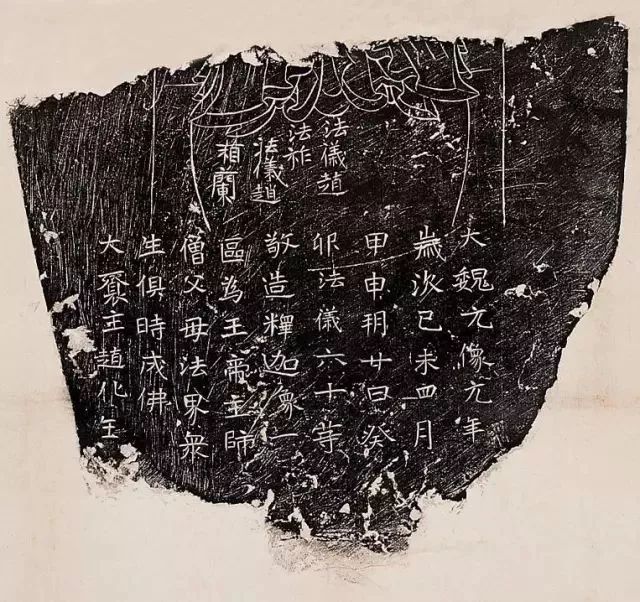 法儀趙
法祚
法儀趙
相蘭
大魏元像元年
歲次己未四月
甲申朔廿日癸
卯法儀六十等
敬造釋迦像一
區為王帝主師
僧父母法界衆
生俱時成佛
大主趙化主